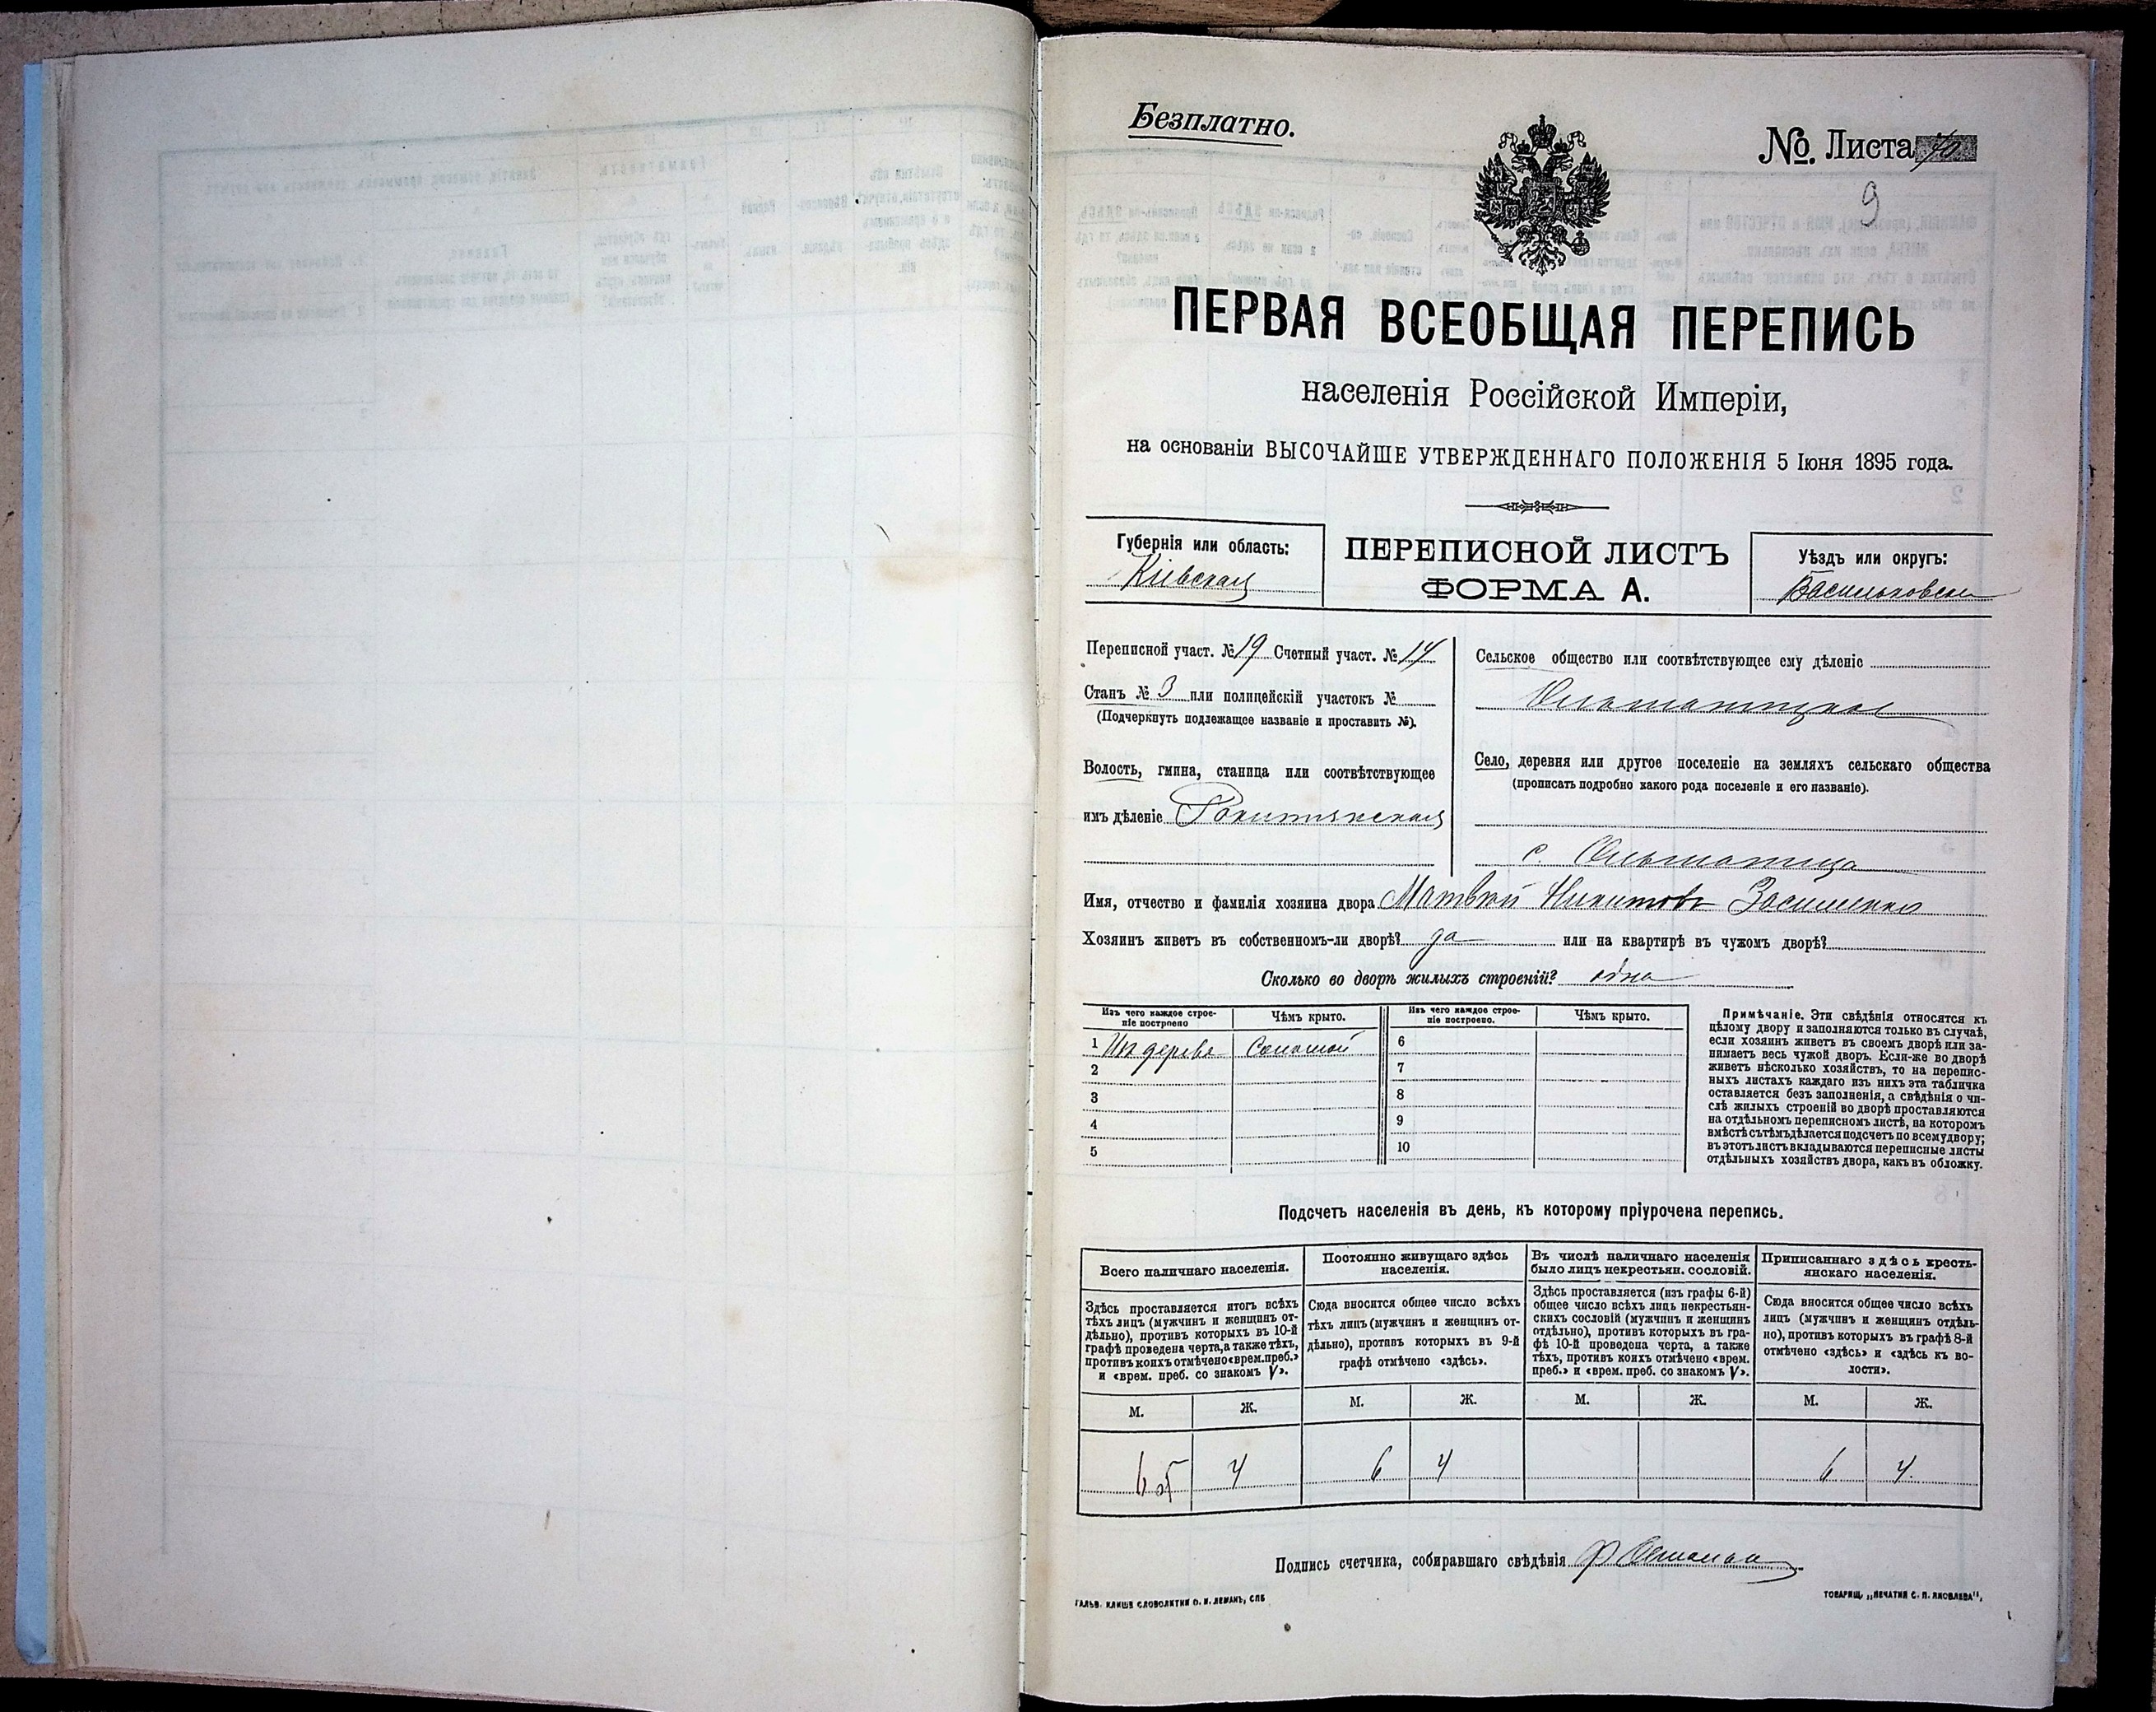 Безплатно.
№ Листа
9
ПЕРВАЯ ВСЕОБЩАЯ ПЕРЕПИСЬ
населенія Россійской Имперіи,
на основаніи ВЫСОЧАЙШЕ УТВЕРЖДЕННАГО ПОЛОЖЕНІЯ 5 Іюня 1895 года.
Губернія или область:
Кіевская
ПЕРЕПИСНОЙ ЛИСТЪ
ФОРМА А.
Уѣздъ или округъ:
Васильковск
Переписной участ. № 19 Счетный участ. № 14
Станъ № 3 или полицейскій участокъ №
(Подчеркнуть подлежащее названіе и проставить №).
Волость, гмина, станица или соотвѣтствующее
имъ дѣленіе Рокитянская
Сельское общество или соотвѣтствующее ему дѣленіе
Ольшаницкое
Село, деревня или другое поселеніе на земляхъ сельскаго общества
(прописать подробно какого рода поселеніе и его названіе).
с. Ольшаница
Имя, отчество и фамилія хозяина двора Матвѣй Никитовъ
Хозяинъ живетъ въ собственномъ-ли дворѣ? да или на квартирѣ въ чужомъ дворѣ?
Сколько во дворѣ жилыхъ строеній? одна
Изъ чего каждое строе-
ніе построено
Чѣмъ крыто.
Изъ чего каждое строе-
ніе построено.
Чѣмъ крыто.
1 Изъ дерева Соломой 6
2 7
3 8
4 9
5 10
Примѣчаніе. Эти свѣдѣнія относятся къ
цѣлому двору и заполняются только въ случаѣ,
если хозяинъ живетъ въ своемъ дворѣ или за-
нимаетъ весь чужой дворъ. Если-же во дворѣ
живетъ нѣсколько хозяйствъ, то на перепис-
ныхъ листахъ каждаго изъ нихъ эта табличка
оставляется безъ заполненія, а свѣдѣнія о чи-
слѣ жилыхъ строеній во дворѣ проставляются
на отдѣльномъ переписномъ листѣ, на которомъ
вмѣстѣ съ тѣмъ дѣлается подсчетъ по всему двору;
въ этотъ листъ вкладываются переписные листы
отдѣльныхъ хозяйствъ двора, какъ въ обложку.
Подсчетъ населенія въ день, къ которому пріурочена перепись.
Всего наличнаго населенія.
Здѣсь проставляется итогъ всѣхъ
тѣхъ лицъ (мужчинъ и женщинъ от-
дѣльно), противъ которыхъ въ 10-й
графѣ проведена черта, а также тѣхъ,
противъ коихъ отмѣчено «врем. преб.»
и «врем. преб. со знакомъ V».
Постоянно живущаго здѣсь
населенія.
Сюда вносится общее число всѣхъ
тѣхъ лицъ (мужчинъ и женщинъ от-
дѣльно), противъ которыхъ въ 9-й
графѣ отмѣчено «здѣсь».
Въ числѣ наличнаго населенія
было лицъ некрестьян. сословій.
Здѣсь проставляется (изъ графы 6-й)
общее число всѣхъ лицъ некрестьян-
скихъ сословій (мужчинъ и женщинъ
отдѣльно), противъ которыхъ въ гра-
фѣ 10-й проведена черта, а также
тѣхъ, противъ коихъ отмѣчено «врем.
преб.» и «врем. преб. со знакомъ V».
Приписаннаго здѣсь кресть-
янскаго населенія.
Сюда вносится общее число всѣхъ
лицъ (мужчинъ и женщинъ отдѣль-
но), противъ которыхъ въ графѣ 8-й
отмѣчено «здѣсь» и «здѣсь къ во-
лости».
М. Ж. М. Ж. М. Ж. М. Ж.
6 5 4 6 4 6 4.
Подпись счетчика, собиравшаго свѣдѣнія
ГАЛЬВ. КЛИШЕ СЛОВОЛИТНИ О. И. ЛЕМАНЪ, СПБ
ТОВАРИЩ. „ПЕЧАТНЯ С. П. ЯКОВЛЕВА“,